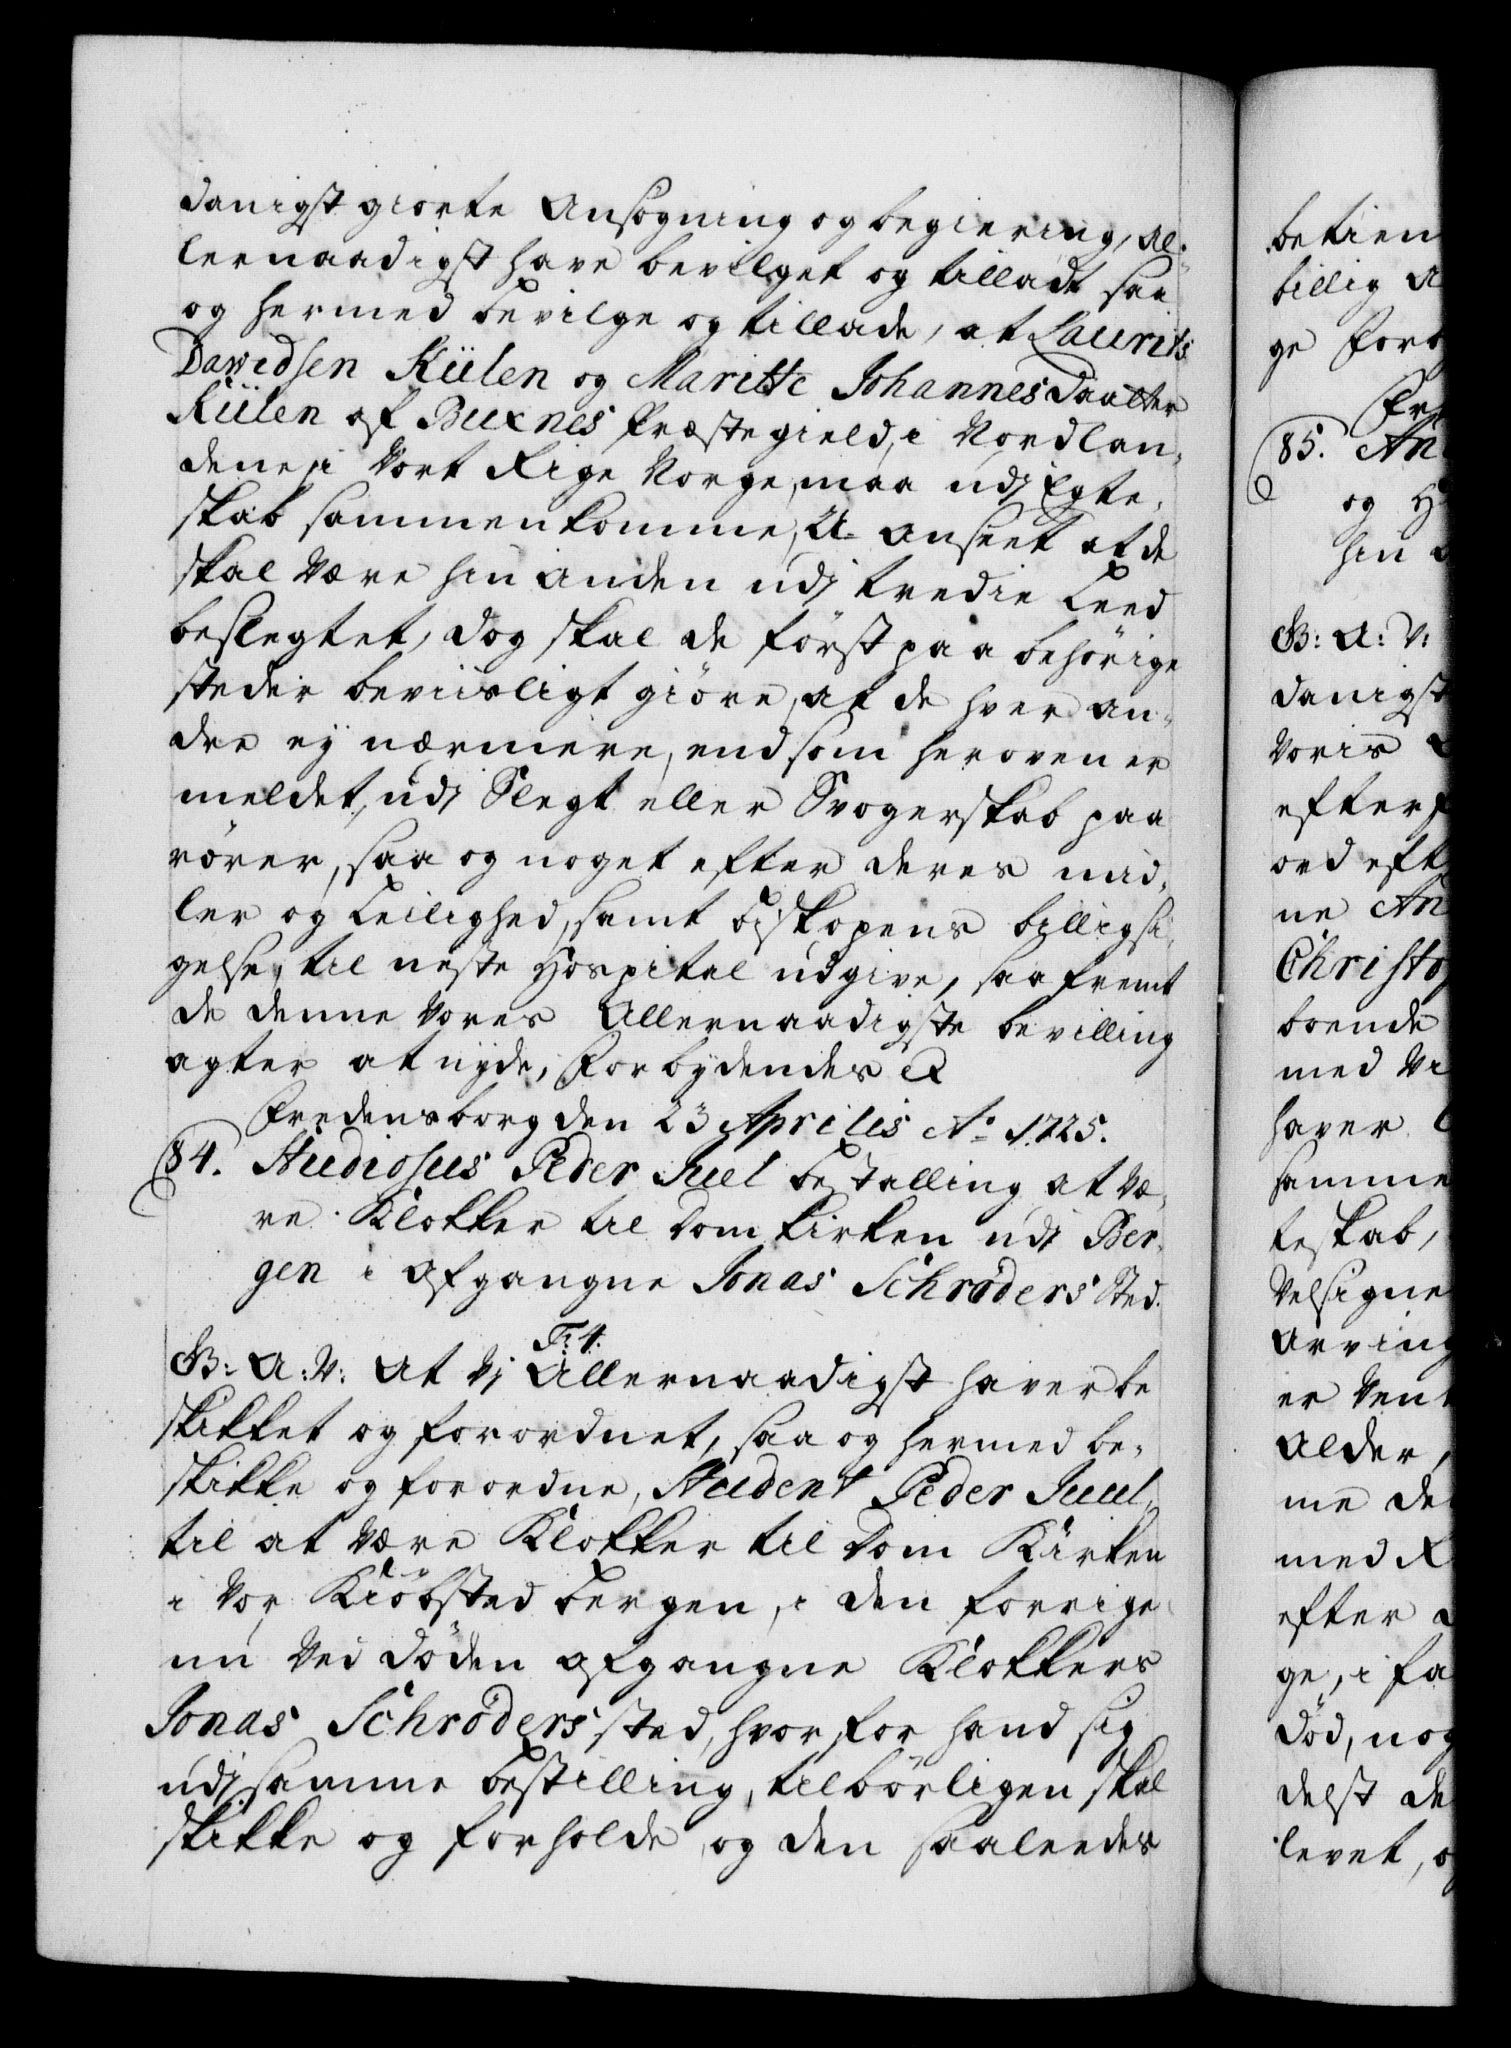 danigst giorte Ansøgning og begiering, al-
lernaadigst have bevilget og tilladt saa
og hermed bevilge og tillade, at Laurits
Davidsen Kiilen og Maritte Johannes Daatter
Kiilen af Buxnes Præstegield, i Nordlan-
dene, i Vort Rige Norge, maa udj Egte-
skab sammenkomme, U-anseet at de
skal være hin anden udj tredie Leed
beslegtet, dog skal de først paa behørige
steder beviisligt giøre, at de hver an-
dre ej nærmere, end som heroven er
meldet, udj Slegt eller Svogerskab paa
rører, saa og noget efter deres mid-
ler og Leilighed, samt Biskopens billigsi-
gelse, til neste Hospital udgive, saafremt
de denne Vores Allernaadigste bevilling
agter at nyde, Forbydendes &
Fredensborg den 23 Aprilis Ao 1725.
84. Studiosus Peder Juel bestalling, at væ-
re Klokker til Dom Kirken udj Ber-
gen i afgangne Jonas Schrøders Sted.
Fr: 4.
G: A: V: At Vj Allernaadigst haver be
skikket og forordnet, saa og hermed be-
skikke og forordne, Student Peder Juul,
til at være Klokker til Dom Kirken
i Vor Kiøbsted Bergen, i den forrige
nu ved døden afgangne Klokkers
Jonas Schrøders sted, hvorfor hand sig
udj samme bestilling, tilbørligen skal
skikke og forholde, og den saaleedes
betien
billig A
ge Forb
Fre
85. An
og H
hin a
G: A: V:
danigst
Voris
efter
ord eft
ne An
Christo
boende
med Vi
haver
samme
teskab,
Velsigne
Arving
er Ven
Alder,
me de
med
efter
ge, i fa
død, nog
delst de
levet, o